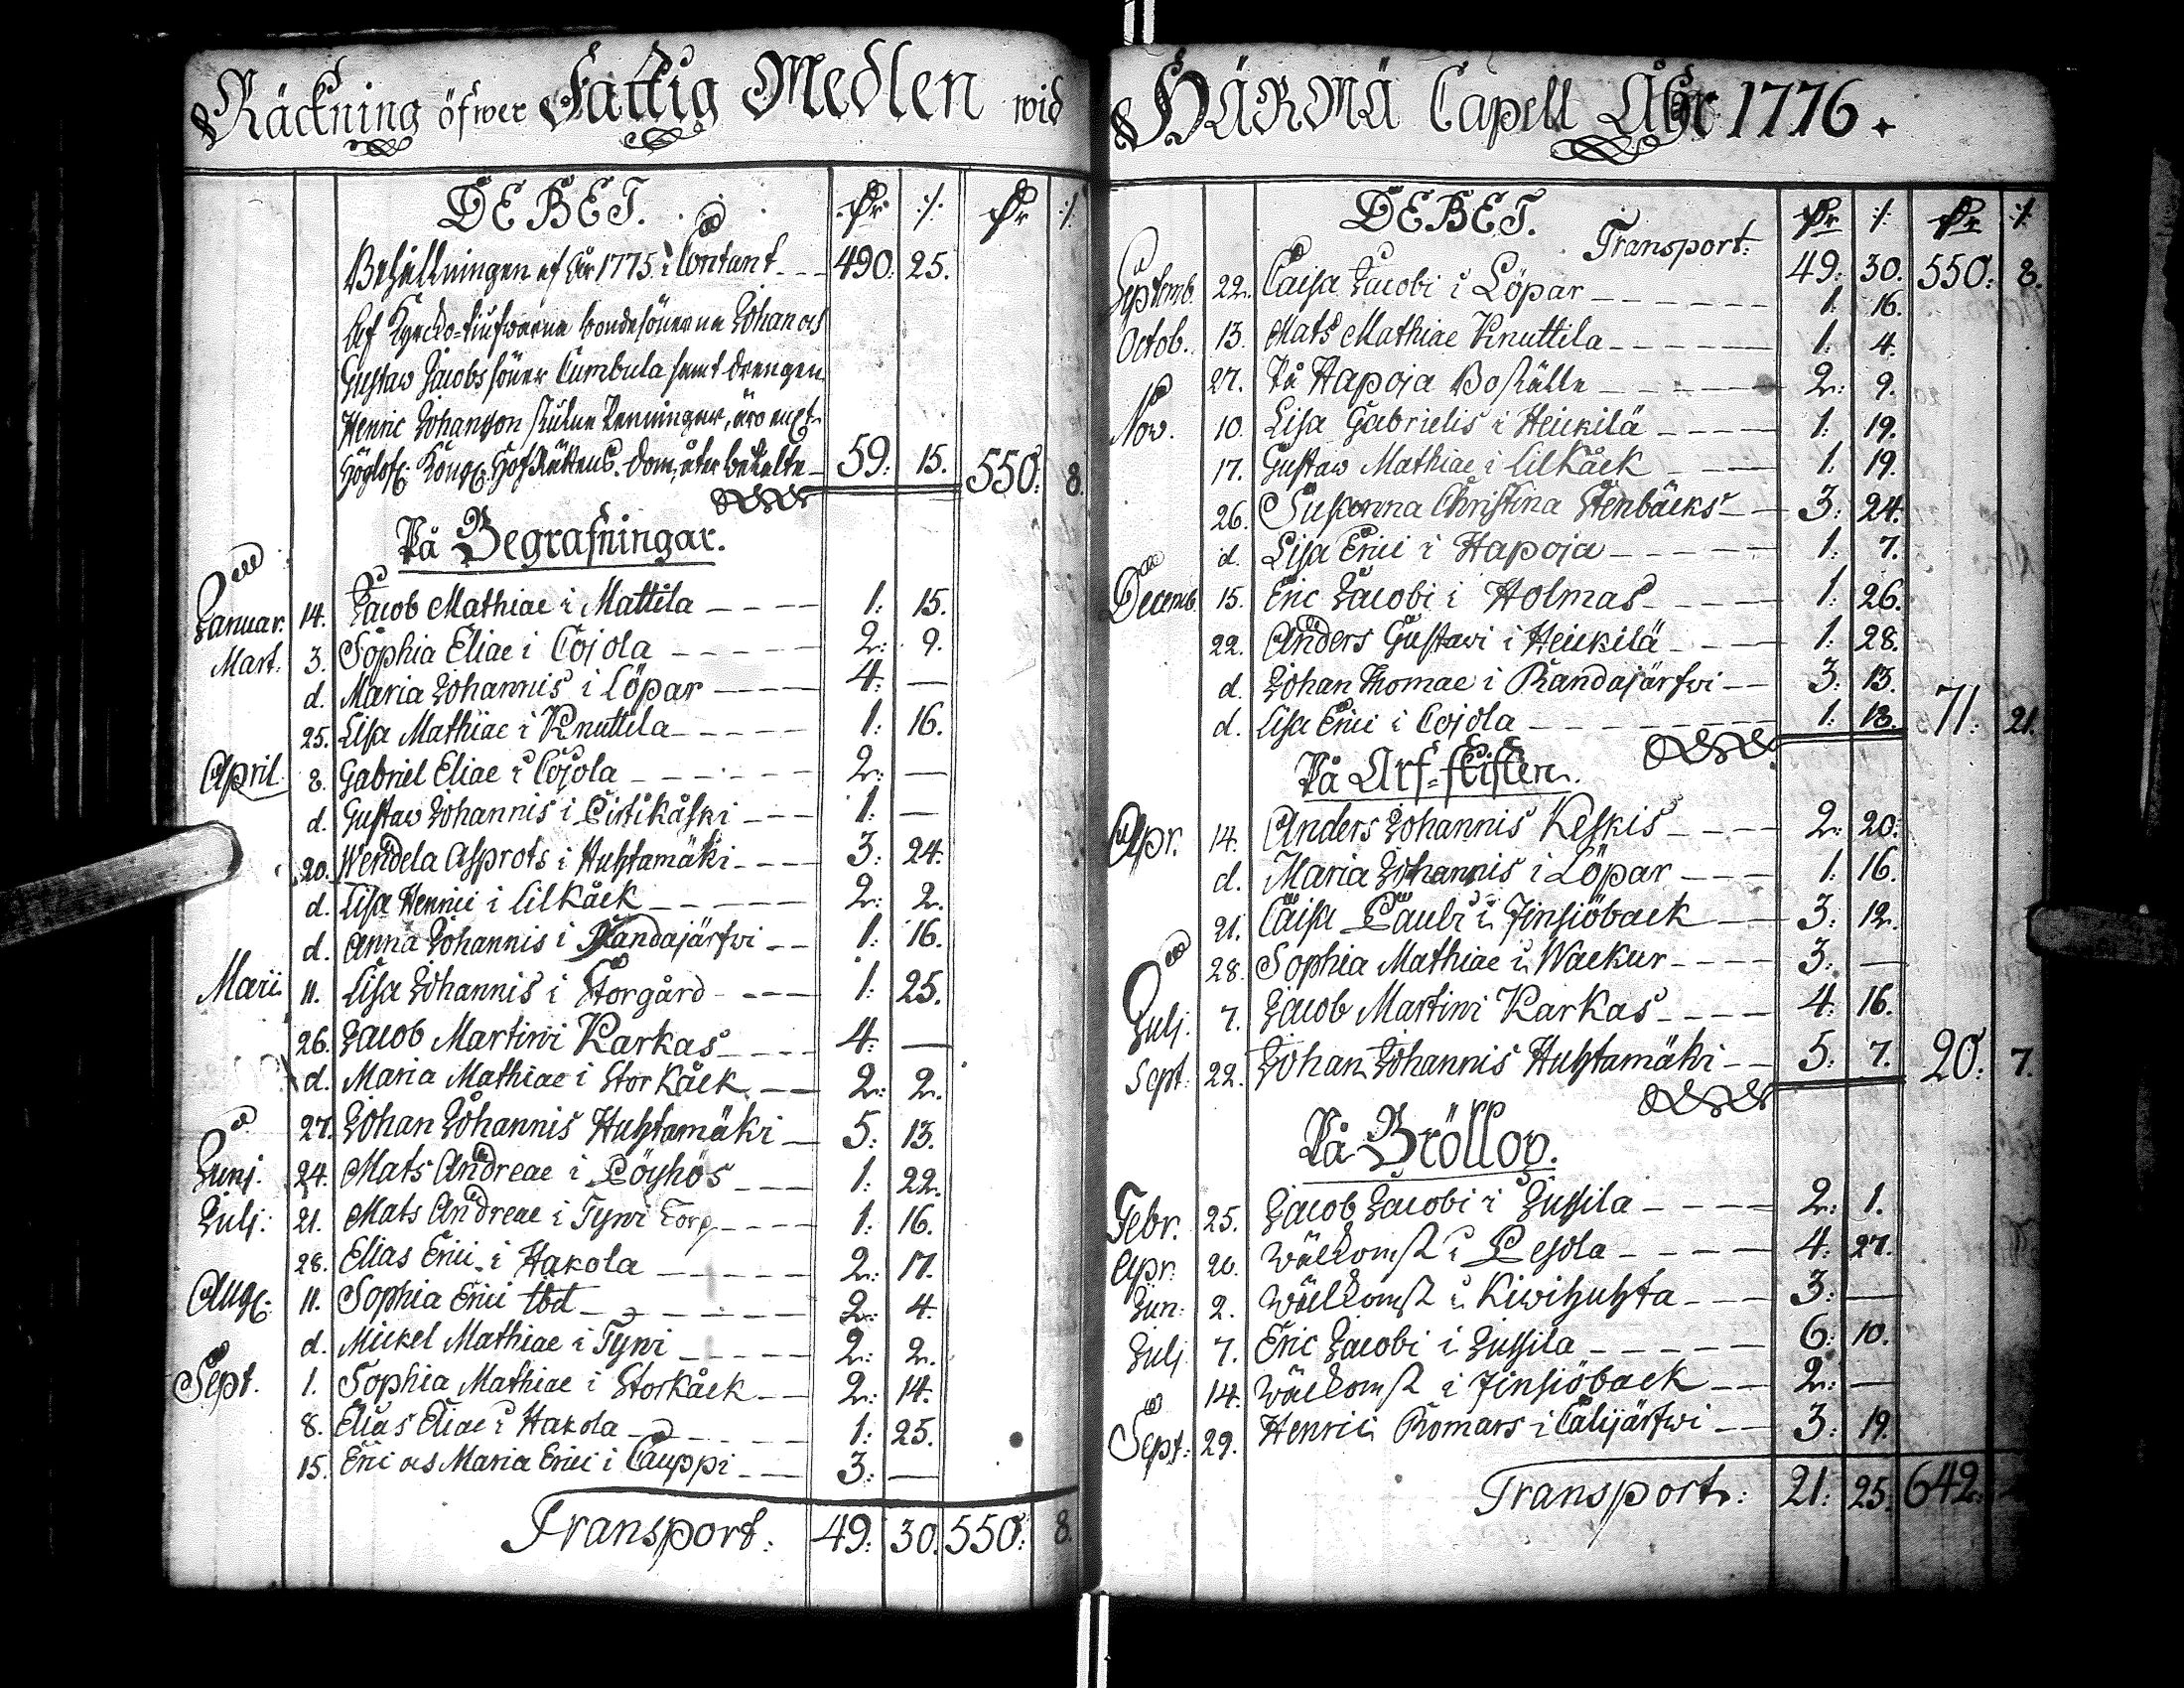 Räckning öfwer Fattig Medlen wid
DEBET.
Behållningen af År 1775. i Contant 490: 25.
Af Kyrcko-tiufwarne bondesönerne Johan och
Gustaw Jacobs söner Cumbula samt drengen
Henric Johansson stulne Penningar, äro enl.
Höglofl. Kongl. HofRättens Dom, åter betalte 59: 15. 550: 8.
På Begrafningar.
Januar. 14. Jacob Mathiae i Mattila 1: 15.
Mart. 3. Sophia Eliae i Cojola 2: 9.
d. Maria Johannis i Löpar 4: —
25. Lisa Mathiae i Knuttila 1: 16.
April. 8. Gabriel Eliae i Cojola 2: —
d. Gustaw Johannis i Pirtikåski 1: —
20. Wendela Asprots i Huhtamäki 3: 24.
d. Lisa Henrici i Lilkåck 2: 2.
d. Anna Johannis i Randajärfwi 1: 16.
Maii 11. Lisa Johannis i Storgård 1: 25.
26. Jacob Martini Karkas 4: —
d. Maria Mathiae i Storkåck 2: 2.
27. Johan Johannis Huhtamäki 5: 13.
Junj. 24. Mats Andreae i Pöyhös 1: 22.
Julj. 21. Mats Andreae i Tyni Torp 1: 16.
28. Elias Erici i Hakola 2: 17.
Aug. 11. Sophia Erici ibd 2: 4.
d. Mickel Mathiae i Tyni 2: 2.
Sept. 1. Sophia Mathiae i Storkåck 2: 14.
8. Elias Eliae i Hakola 1: 25.
15. Eric och Maria Erici i Cauppi 3: —
Transport: 49: 30. 550: 8.
HÄRMÄ Capell Åhr 1776.
DEBET.
Transport: 49: 30. 550: 8.
Septemb. 22. Caisa Jacobi i Löpar 1: 16.
Octob. 13. Mats Mathiae Knuttila 1: 4.
27. På Hapoja Boställe 2: 9.
Nov. 10. Lisa Gabrielis i Heickilä 1: 19.
17. Gustaw Mathiae i Lilkåck 1: 19.
26. Susanna Christina Stenbäcks 3: 24.
d. Lisa Erici i Hapoja 1: 7.
Decemb. 15. Eric Jacobi i Holmas 1: 26.
22. Anders Gustavi i Heickilä 1: 28.
d. Johan Thomae i Randajärfwi 3: 13.
d. Lisa Erici i Cojola 1: 18. 71: 21.
På Arf-skiften.
Apr. 14. Anders Johannis Keskis 2: 20.
d. Maria Johannis i Löpar 1: 16.
21. Caisa Pauli i Finsiöback 3: 12.
28. Sophia Mathiae i Wackur 3: —
Julj. 7. Jacob Martini Karkas 4: 16.
Sept. 22. Johan Johannis Huhtamäki 5: 7. 20: 7.
På Bröllop.
Febr. 25. Jacob Jacobi i Jussila 2: 1.
Apr. 20. Wälkomst i Pesola 4: 27.
Jun: 2. Wälkomst i Kiwihuhta 3: —
Julj 7. Eric Jacobi i Jussila 6: 10.
14. Wälkomst i Finsiöback 2: —
Sept: 29. Henrici Romars i Calijärfwi 3: 19.
Transport: 21: 25. 642: